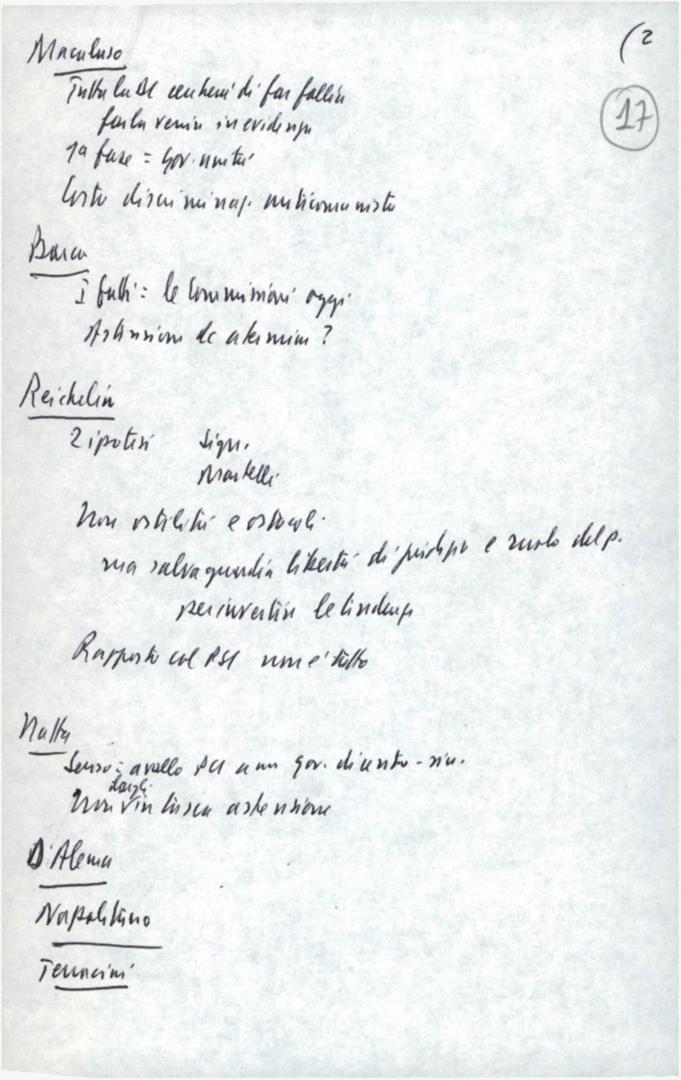 (2
17
Macaluso
Tutta la DC cercherà di far fallire
farla venire in evidenza
1ª fase = gov. unità
Costo discriminaz. anticomunista
Barca
I fatti = le Commissioni oggi
Astensione dc a termine?
Reichelin
2 ipotesi Sign.
Martelli
Non ostilità e ostacoli
ma salvaguardia libertà di giudizio e ruolo del p.
per invertire le tendenze
Rapporto col PSI non è tutto
Natta
Senso: avallo PCI a un gov. di centro-sin.
Non dargli in tasca astensione
D'Alema
Napolitano
Terracini